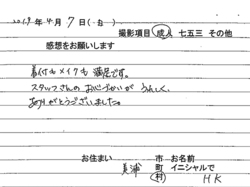 2019年4月7日(日)
撮影項目 成人 七五三 その他
感想をお願いします
着付もメイクも満足です。
スタッフさんのお心づかいがうれしく、
ありがとうございました。
お住まい 美浦 市町村
お名前 イニシャルで H K